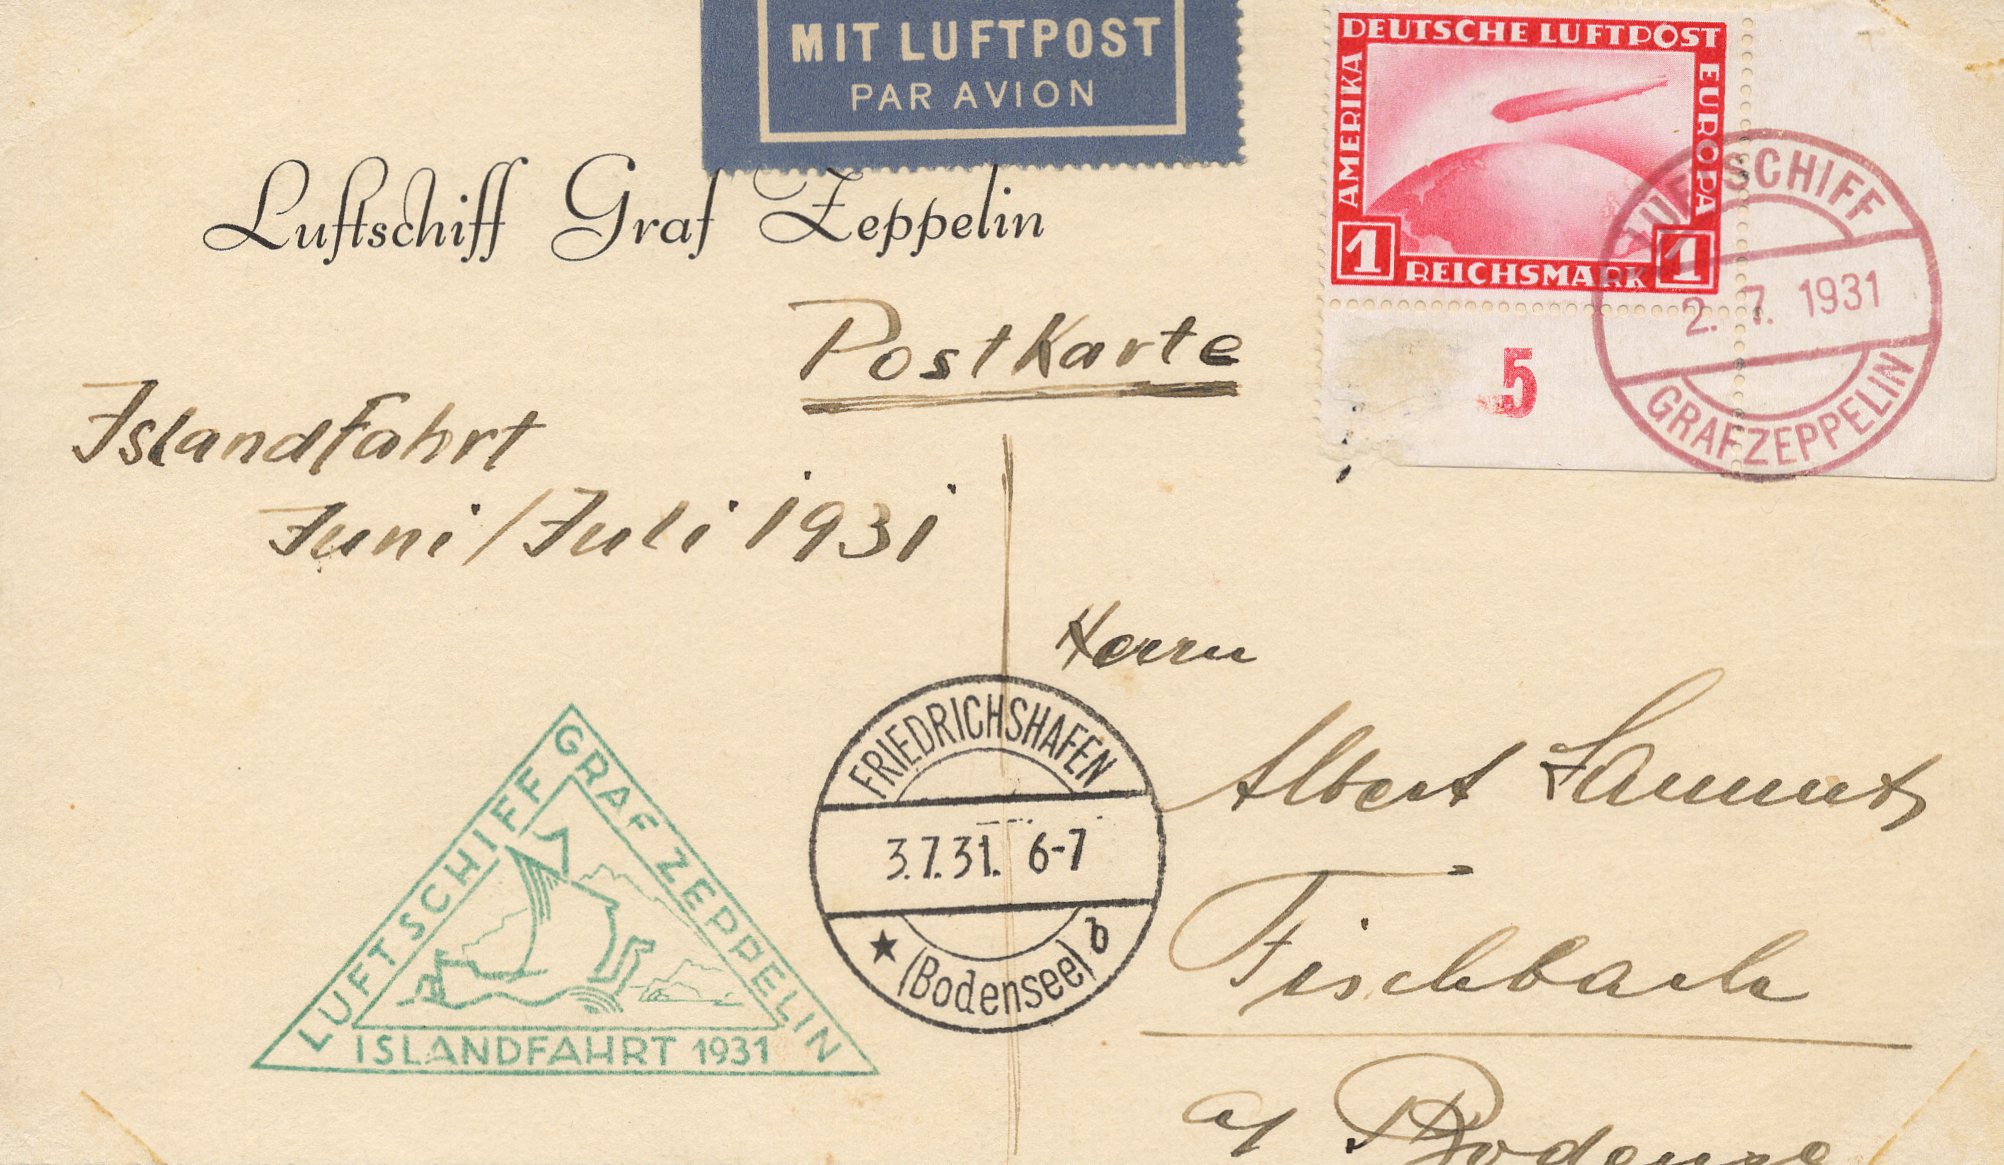 MIT LUFTPOST
PAR AVION
Luftschiff Graf Zeppelin
DEUTSCHE LUFTPOST
AMERIKA
EUROPA
1 REICHSMARK 1
5
LUFTSCHIFF
2. 7. 1931
GRAF ZEPPELIN
Postkarte
Islandfahrt
Juni/Juli 1931
Herrn
Albert
Fischbach
a/
FRIEDRICHSHAFEN
3.7.31. 6-7
(Bodensee) b
LUFTSCHIFF GRAF ZEPPELIN
ISLANDFAHRT 1931